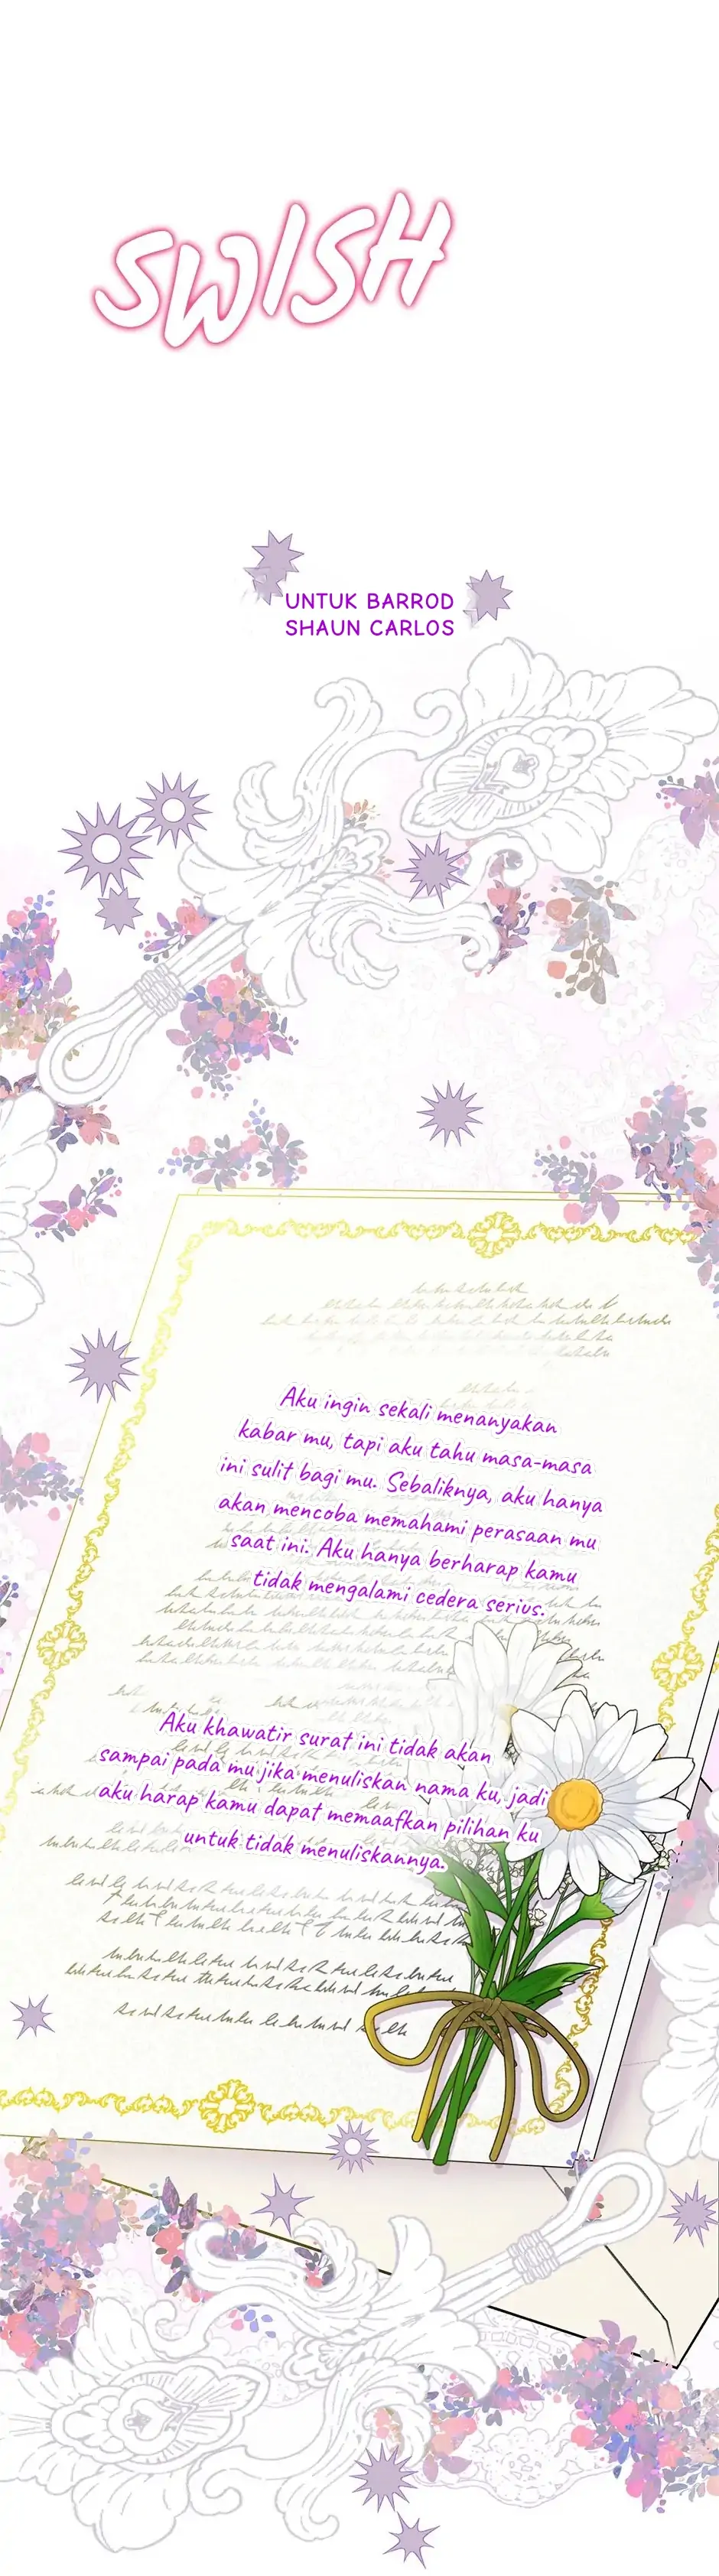 SWISH
UNTUK BARROD
SHAUN CARLOS
Aku ingin sekali menanyakan
kabar mu, tapi aku tahu masa-masa
ini sulit bagi mu. Sebaliknya, aku hanya
akan mencoba memahami perasaan mu
saat ini. Aku hanya berharap kamu
tidak mengalami cedera serius.
Aku khawatir surat ini tidak akan
sampai pada mu jika menuliskan nama ku, jadi
aku harap kamu dapat memaafkan pilihan ku
untuk tidak menuliskannya.